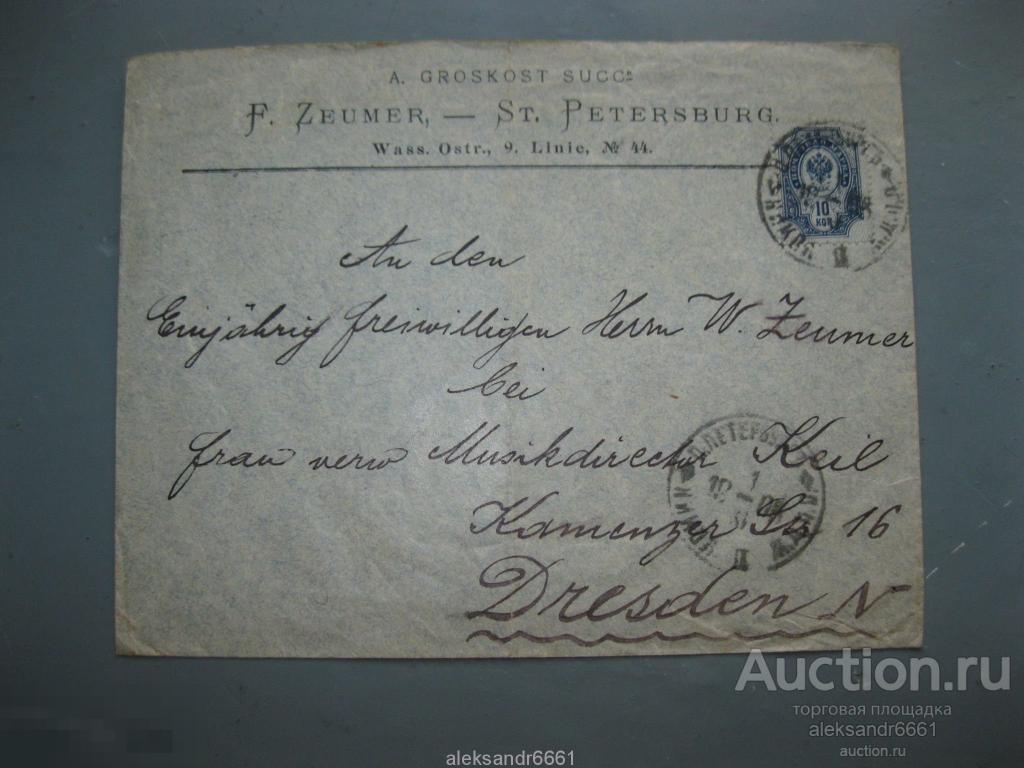 A. GROSKOST SUCC^R.
F. ZEUMER, — ST. PETERSBURG.
Wass. Ostr., 9. Linie, № 44.
10
КОП
An den
Einjährig freiwilligen Herrn W. Zeumer
bei
frau verw Musikdirector Keil
Kamenzer Str 16
Dresden N
Auction.ru
торговая площадка
aleksandr6661
auction.ru
aleksandr6661